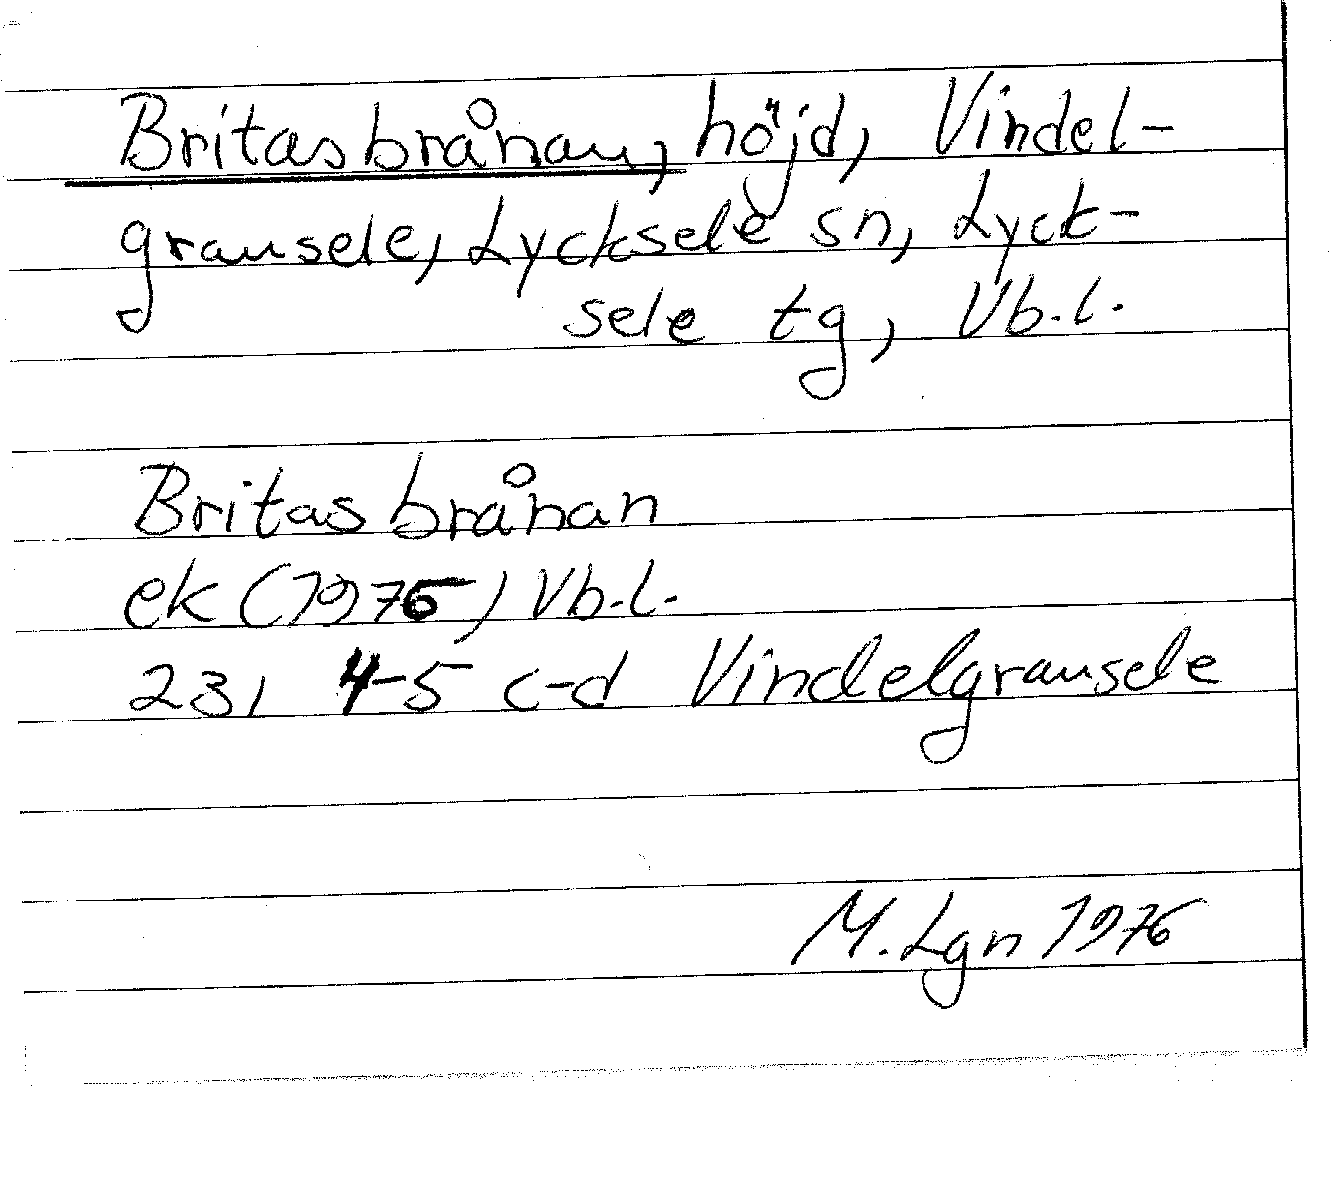 Britasbrånan, höjd, Vindel-
gransele, Lycksele sn, Lyck-
sele tg, Vb.l.
Britasbrånan
ek (1975) Vb.l.
23I 4-5 c-d Vindelgransele
M. Lgn 1976